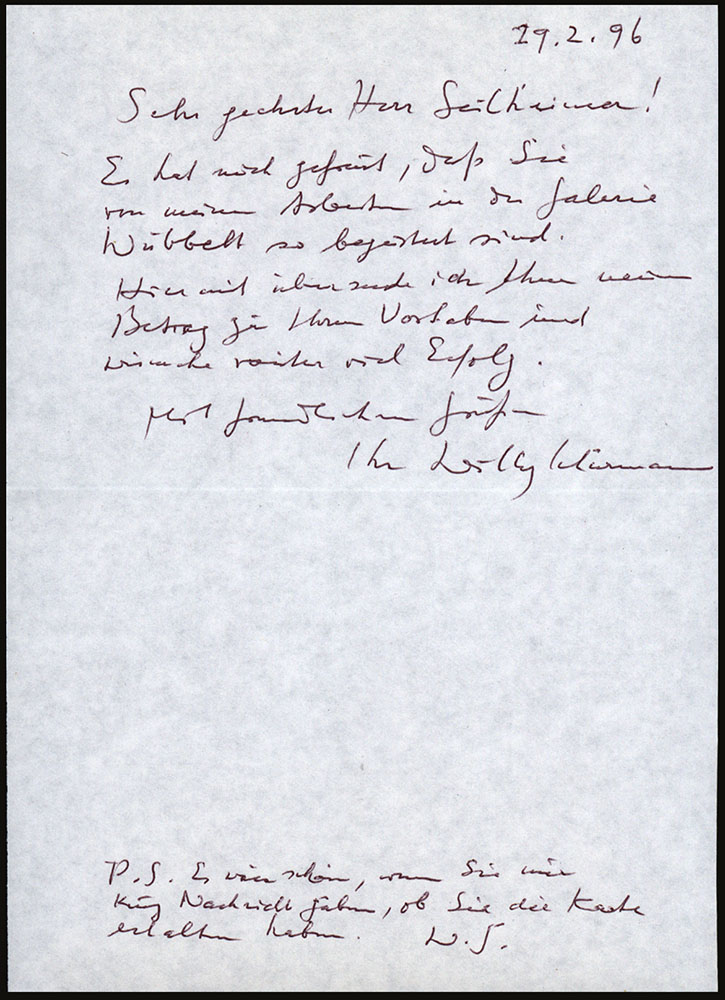 29.2.96
Sehr geehrter Herr
Es hat mich gefreut, daß Sie
von meinen Arbeiten in der Galerie
Wübbelt so begeistert sind.
Hiermit übersende ich Ihnen meinen
Beitrag zu Ihrem Vorhaben und
wünsche weiter viel Erfolg.
Mit freundlichen Grüßen
Ihr Willy
P.S. Es wäre schön, wenn Sie mir
kurz Nachricht gäben, ob Sie die Karte
erhalten haben.